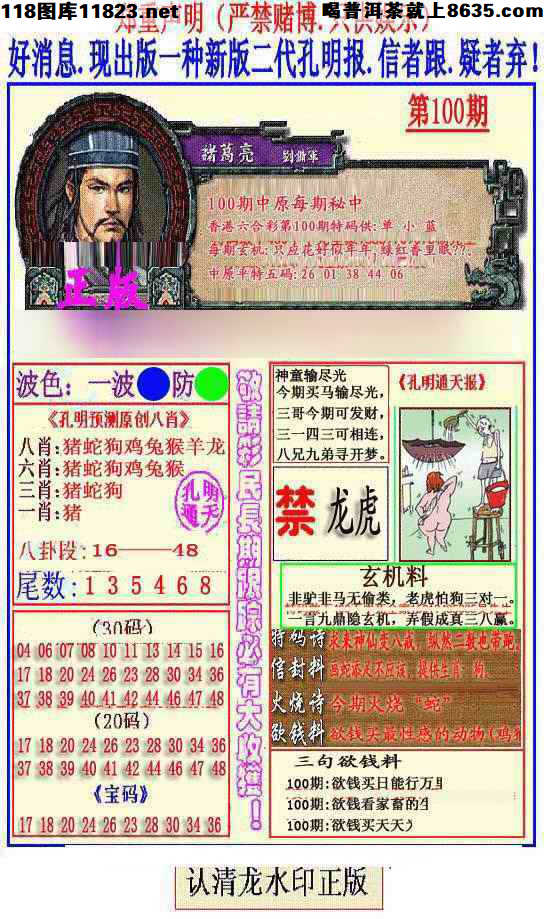 118图库11823.net
喝普洱茶就上8635.com
郑重声明（严禁赌博.只供娱乐）
好消息.现出版一种新版二代孔明报.信者跟.疑者弃!
第100期
諸葛亮
100期中原每期秘中
香港六合彩第100期特码供:单 小 蓝
每期玄机:只应花好似年年 绿红香里眠??:
中原平特五码:26 01 38 44 06
正版
波色：一波 防
《孔明预测原创八肖》
八肖:猪蛇狗鸡兔猴羊龙
六肖:猪蛇狗鸡兔猴
三肖:猪蛇狗
一肖:猪
孔明
通天
八卦段:16——48
尾数:135468
敬請彩民長期跟踪必有大收獲！
(30码)
04 06 07 08 10 11 13 14 15 16
17 18 20 24 26 23 28 30 34 36
37 38 39 40 41 42 44 46 47 48
(20码)
17 18 20 24 26 23 28 30 34 36
37 38 39 40 41 42 44 46 47 48
《宝码》
17 18 20 24 26 23 28 30 34 36
神童输尽光
今期买马输尽光,
三哥今期可发财,
三一四三可相连,
八兄九弟寻开梦。
《孔明通天报》
禁 龙虎
玄机料
非驴非马无偷类，老虎怕狗三对一。
一言九鼎隐玄机，弄假成真三八赢。
特码诗 求来神仙变八戒，纵然二数也带跑.
信封料 画蛇添足不应该，提供生肖：狗.
火烧诗 今期火烧“蛇”
欲钱料 欲钱买最性感的动物(鸡
三句欲钱料
100期:欲钱买日能行万
100期:欲钱看家畜的
100期:欲钱买天天
认清龙水印正版